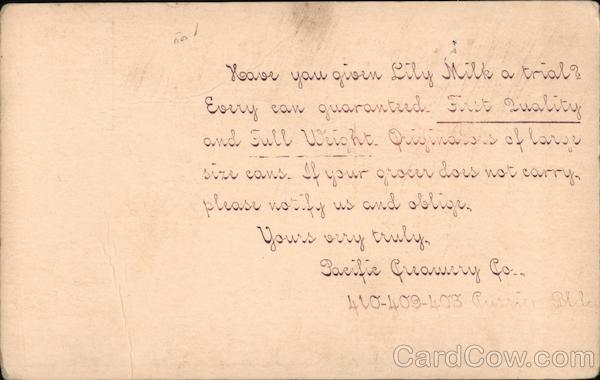 Have you given Lily Milk a trial?
Every can guaranteed. First Quality
and Full Weight. Originators of large
size cans. If your grocer does not carry,
please notify us and oblige,
Yours very truly,
Pacific Creamery Co.,
410-409-403 Currier Bld.
CardCow.com